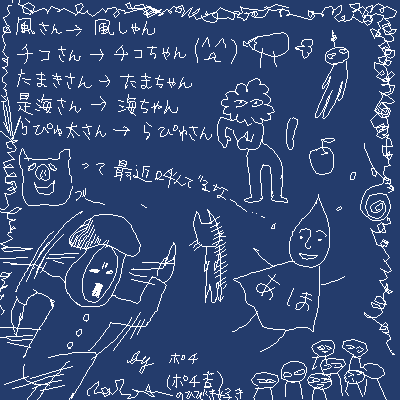 風さん→風しゃん
チコさん→チコちゃん(^ㅅ^)
たまきさん→たまちゃん
是海さん→海ちゃん
らぴゅ太さん→らぴゅさん
って最近呼んでるな〜
あほ
by ポチ
(ポチ吉)
のひびき好き